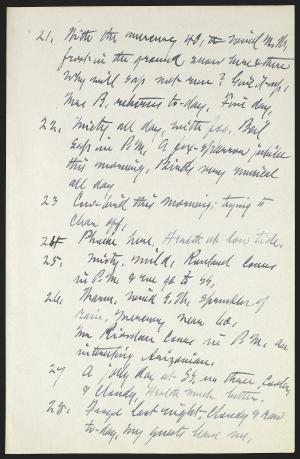 21. With the mercury 40, wind N.W.
frost in the ground, snow here & there
Why will sap not run? Give it up,
Mrs B. returns to-day. Fine day,
22. Misty all day, with fog. Boil
sap in P.M. A fox-sparrow jubilee
this morning, Birds very musical
all day
23 Cow-bird this morning; trying to
clear off,
24 Phoebe here. Health at low tide.
25. Misty, mild, Rowland comes
in P.M. & we go to SS,
26. Warm, wind S.W. sprinkles of
rain, Mercury near 60,
Mr Riordan comes in P.M. an
interesting Arizonian.
27 A day at SS, us three,
& cloudy, Health much better.
28. last night, Cloudy & raw
to-day, my guests leave me,